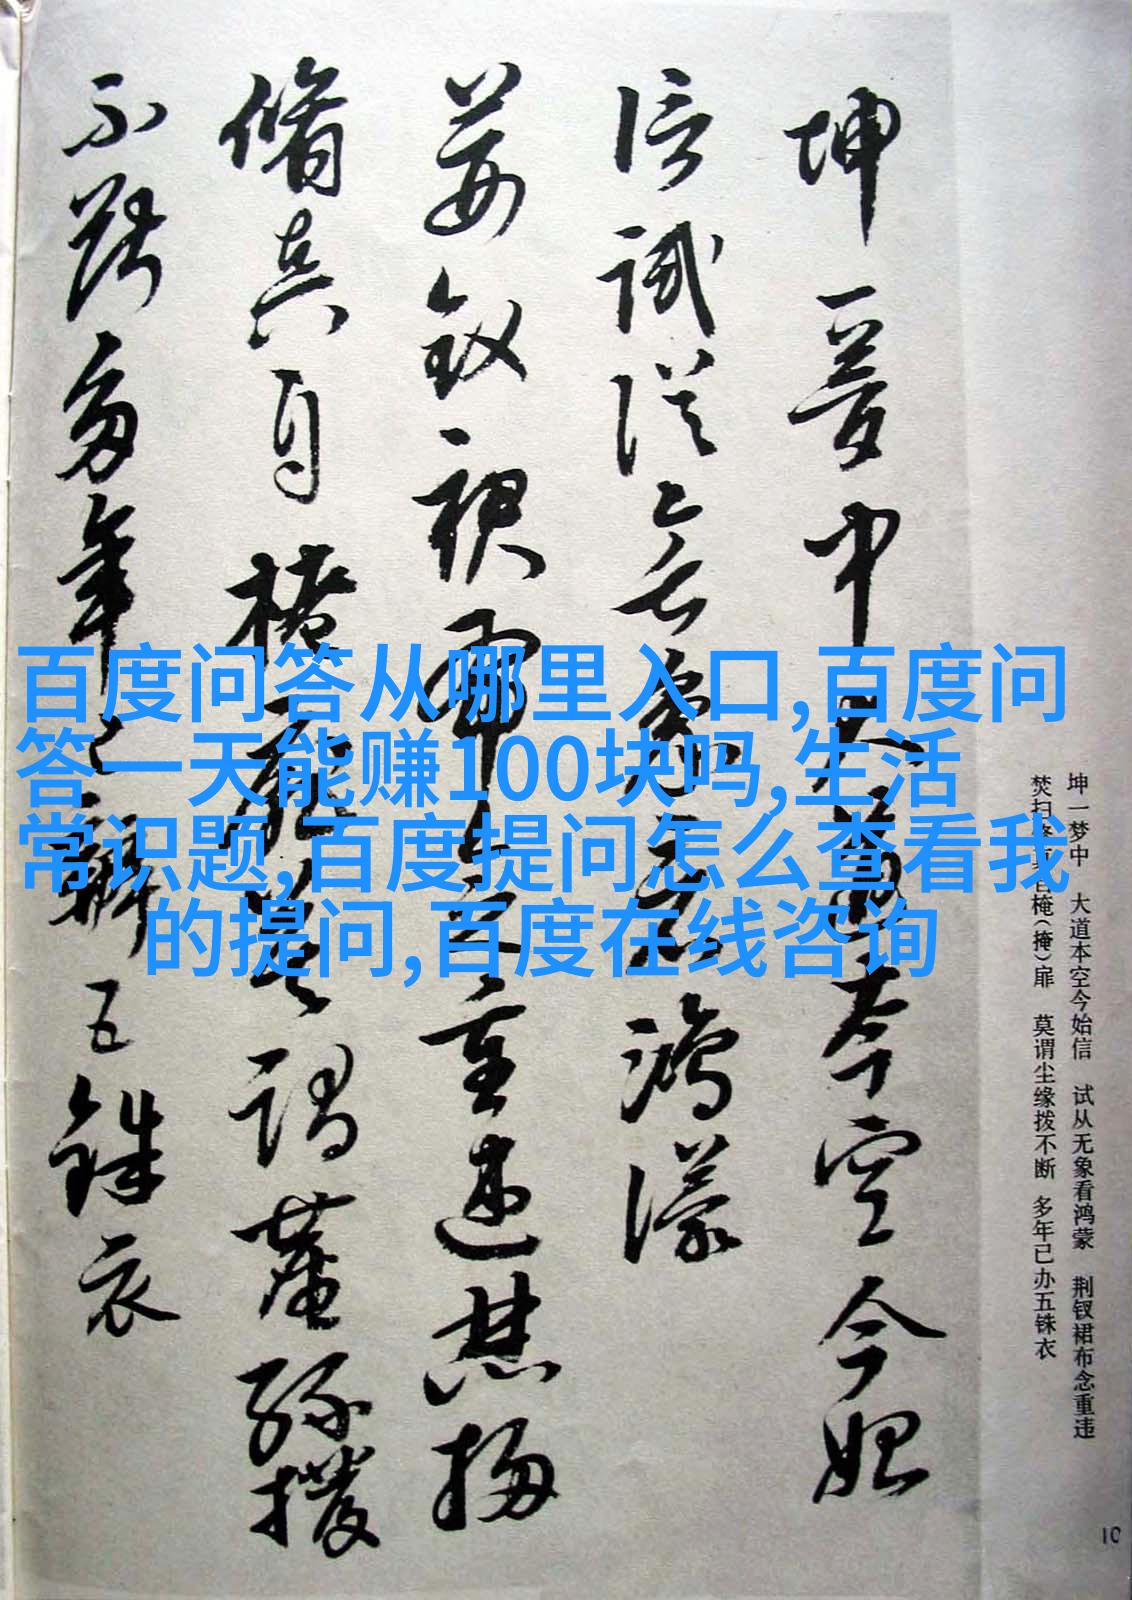 坤一夢中大道本空今始
信試從無象看鴻濛
荆釵裙布念重違焚掃
脩真自掩扉莫謂塵緣撥
不斷多年已辦五銖衣
坤一梦中　大道本空今始信　试从无象看鸿蒙　荆钗裙布念重违
焚扫修真自(掩)扉　莫谓尘缘拨不断　多年已办五铢衣
10
百度问答从哪里入口,百度问
答一天能赚100块吗,生活
常识题,百度提问怎么查看我
的提问,百度在线咨询